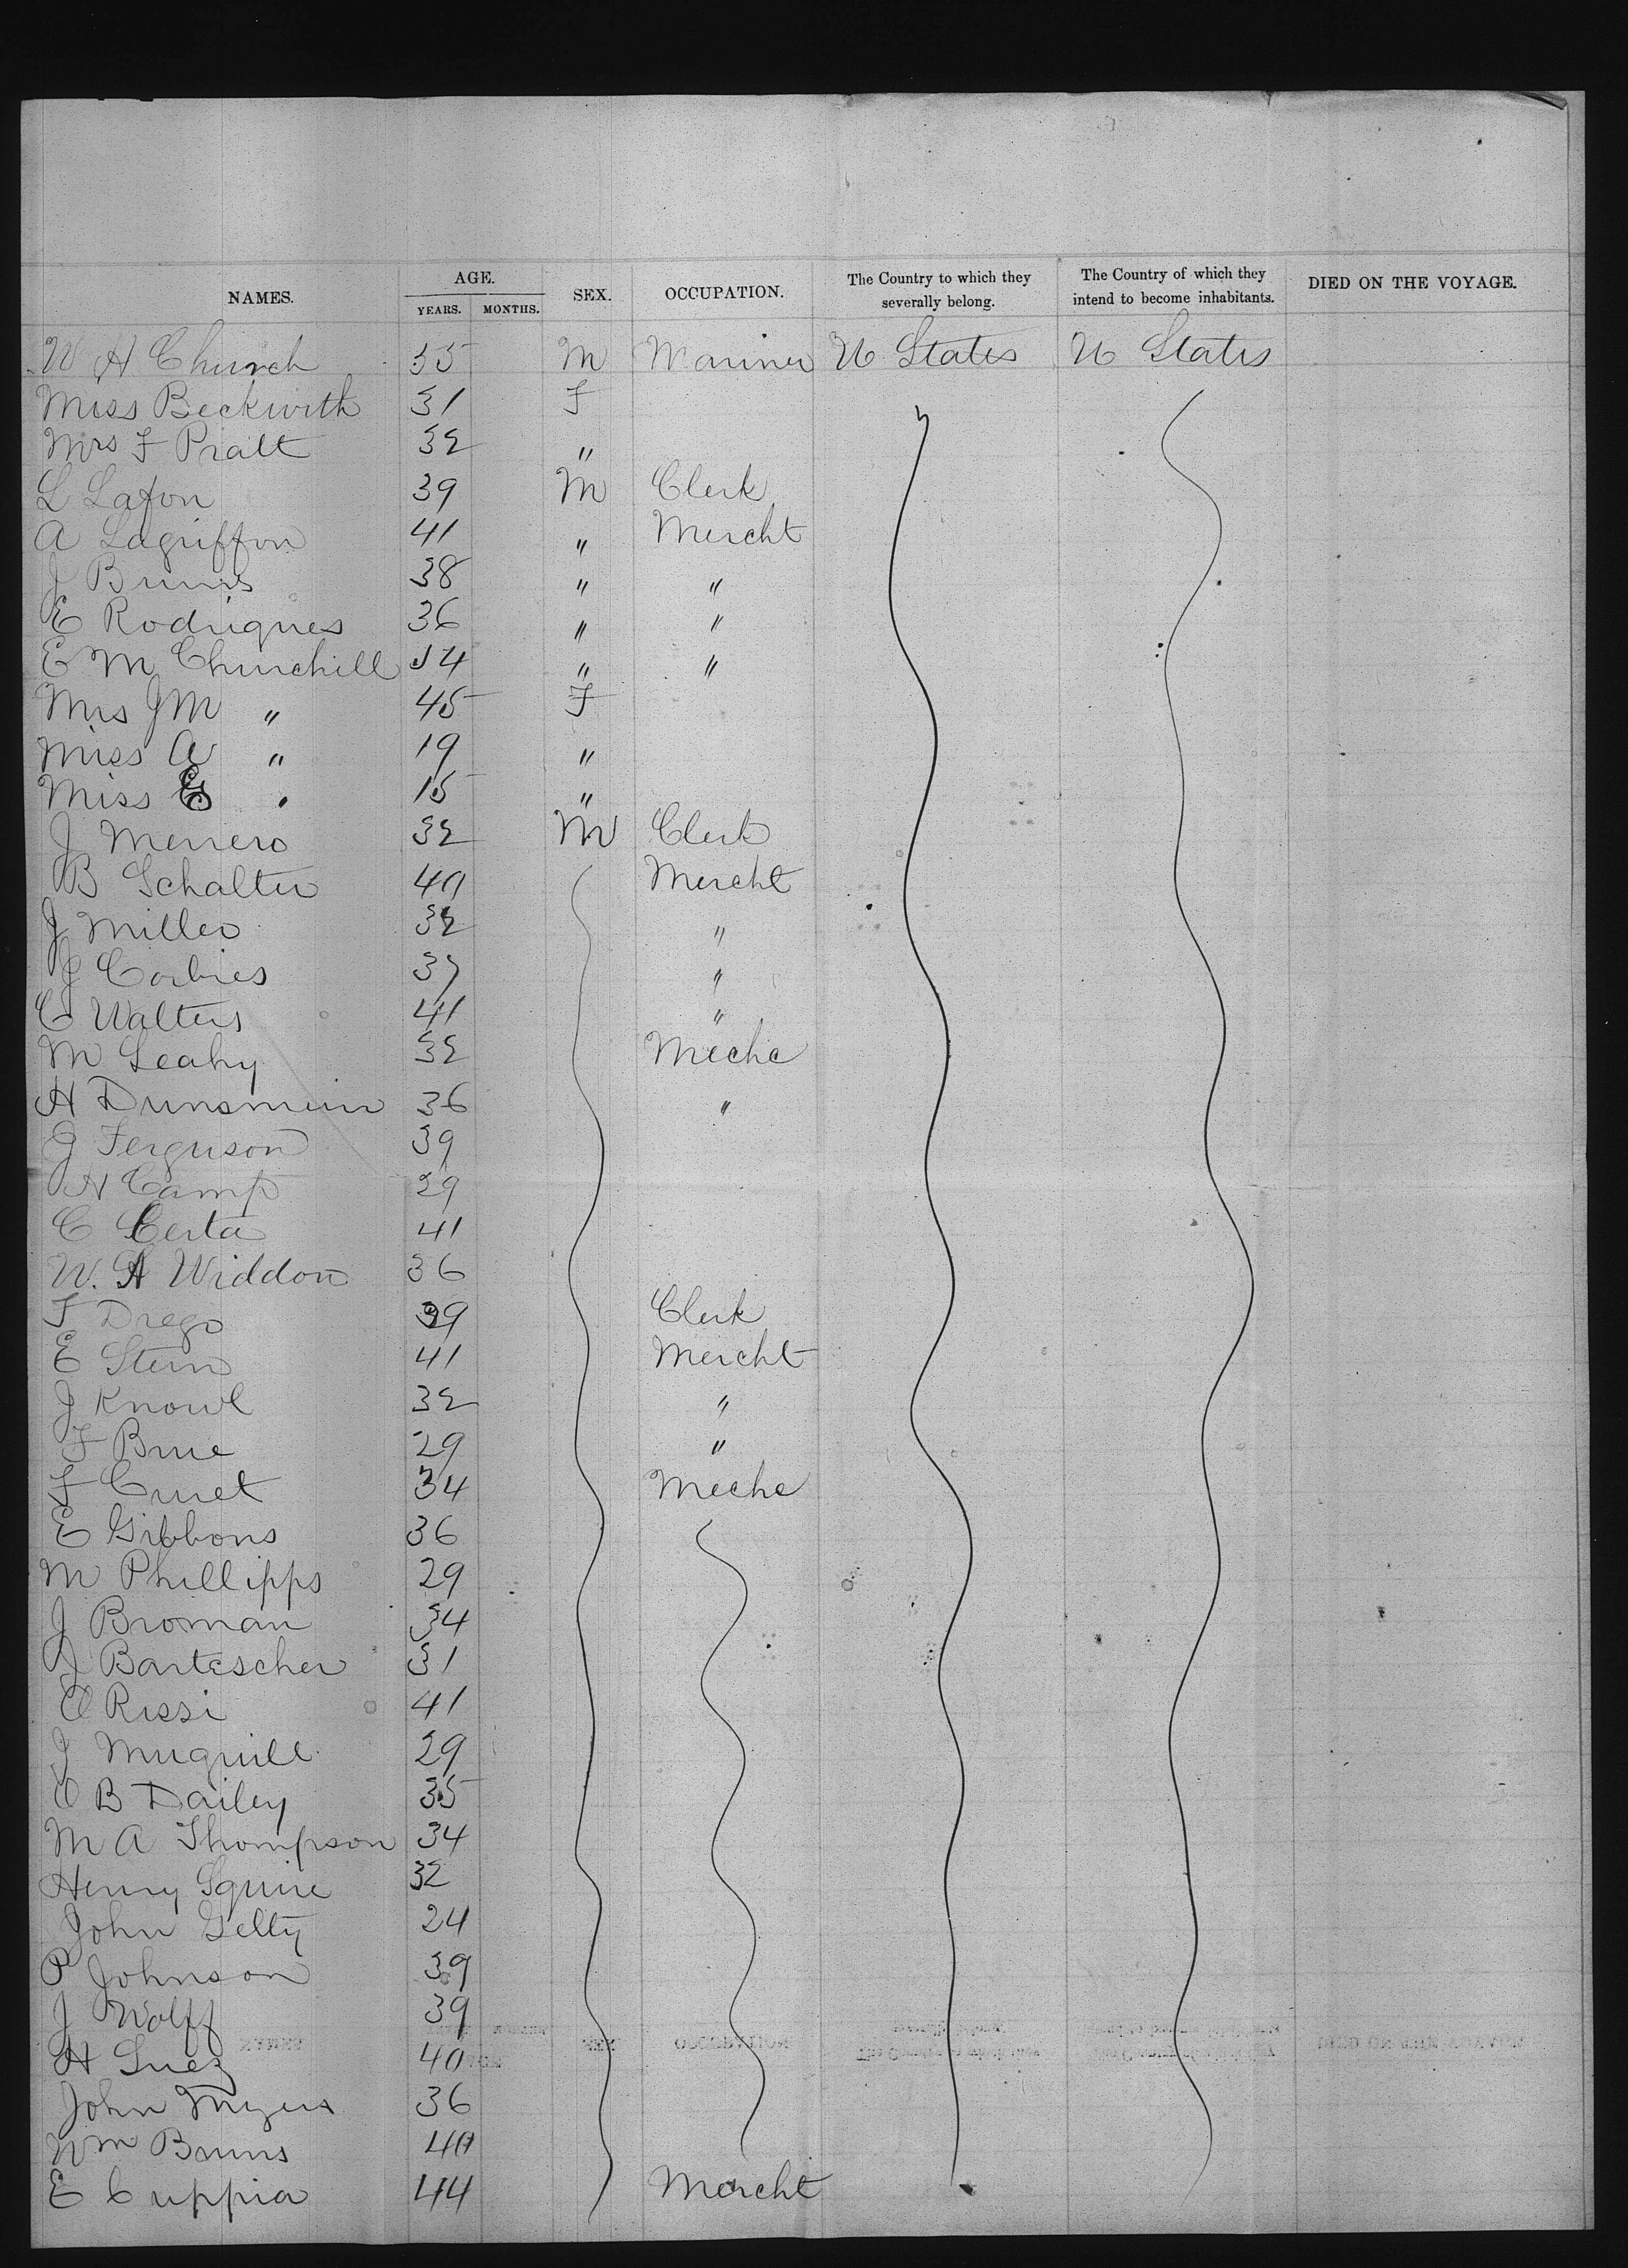 NAMES. AGE. YEARS. MONTHS. SEX. OCCUPATION. The Country to which they severally belong. The Country of which they intend to become inhabitants. DIED ON THE VOYAGE.
W A Church 55 M Mariner U States U States
Miss Beckwith 31 F
Mrs F Pratt 32 "
L Lafon 39 M Clerk
A Lagriffon 41 " Mercht
J Bruns 38 " "
E Rodrigues 36 " "
E M Churchill 54 " "
Mrs J M " 45 F
Miss A " 19 "
Miss E " 15 "
J Merrero 32 M Clerk
B Schalter 40 Mercht
J Miller 32 "
J Corbies 37 "
C Walters 41 "
M Leahy 32 Mechc
H Dunsmuir 36 "
J Ferguson 39
H Camp 29
C Certa 41
W. A Widdon 36
F Drego 39 Clerk
E Stern 41 Mercht
J Knowl 32 "
F Brue 29 "
F Curet 34 Mechc
E Gibbons 36
M Phillipps 29
J Broman 34
J Bartescher 31
C Rissi 41
J Muguill 29
C B Dailey 35
M A Thompson 34
Henry Squire 32
John Getty 24
P Johnson 39
J Wolff 39
H Suez 40
John Myers 36
Wm Bruns 40
E Cuppia 44 Mercht